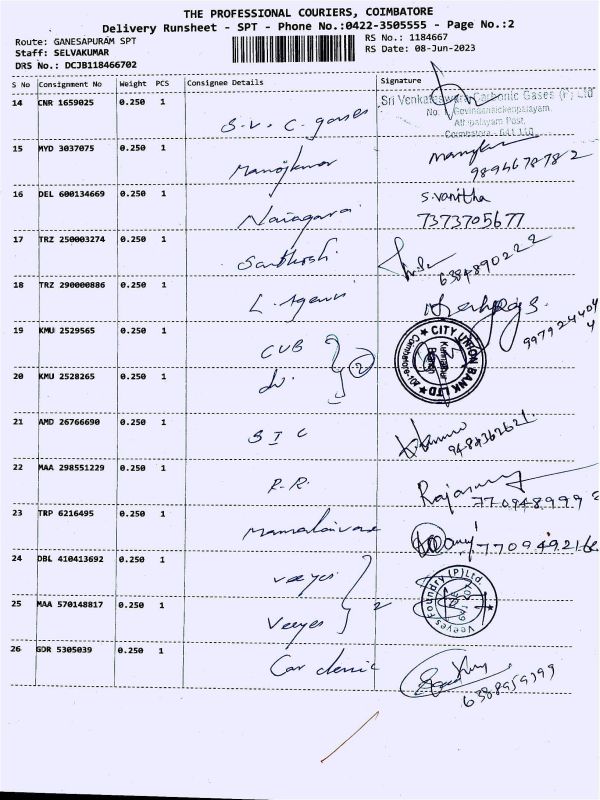 THE PROFESSIONAL COURIERS, COIMBATORE
Delivery Runsheet - SPT - Phone No.:0422-3505555 - Page No.:2
Route: GANESAPURAM SPT
RS No.: 1184667
Staff: SELVAKUMAR
RS Date: 08-Jun-2023
DRS No.: DCJB118466702
S No Consignment No Weight PCS Consignee Details Signature
14 CNR 1659025 0.250 1 S.V.C. gases
Sri Venkateswara Carbonic Gases (P) Ltd
Coimbatore - 641 110
15 MYD 3037075 0.250 1 Manojkumar
9894678782
16 DEL 600134669 0.250 1 Naiagarai S.vanitha
7373705677
17 TRZ 250003274 0.250 1 Santhosh
6384890222
18 TRZ 290000886 0.250 1 L.
19 KMU 2529565 0.250 1 CUB 2
CITY UNION BANK LTD
20 KMU 2528265 0.250 1 do.
21 AMD 26766690 0.250 1 S I C
9484362621.
22 MAA 298551229 0.250 1 R.R.
770948999
23 TRP 6216495 0.250 1
770949216
24 DBL 410413692 0.250 1 veeyes
Veeyes Foundry (P) Ltd
25 MAA 570148817 0.250 1 Veeyes 2
26 GDR 5305039 0.250 1 Car
6388959399